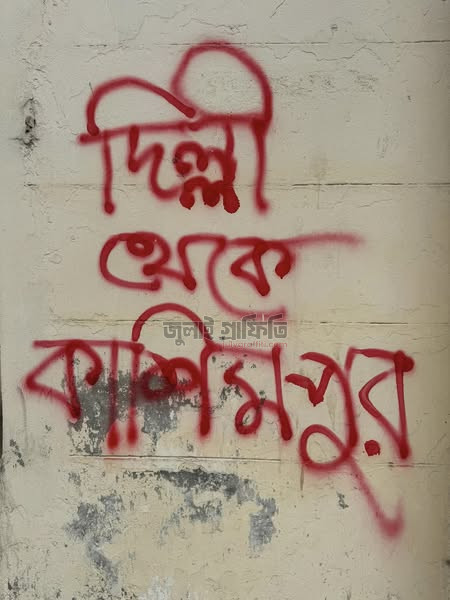 দিল্লী
থেকে
জুলাই গ্রাফিতি
কাশিমপুর